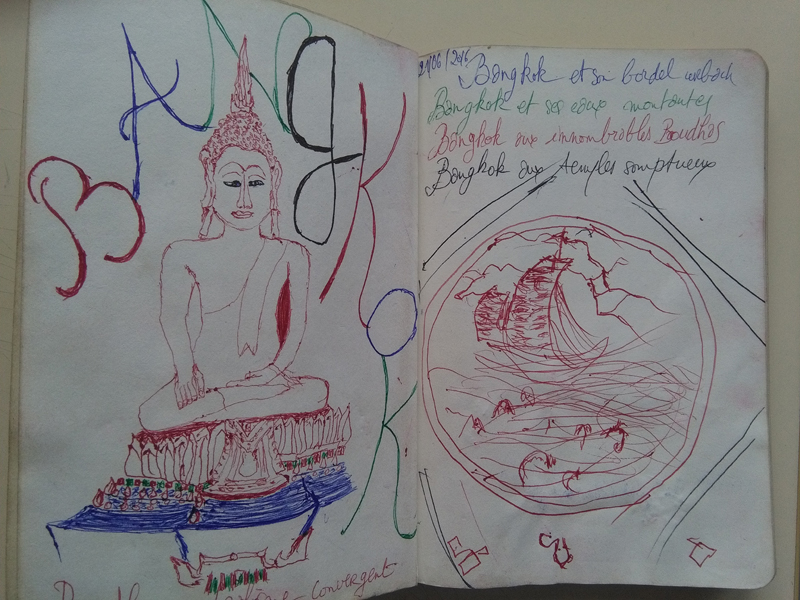 BANgKOK
21/06/2016
Bangkok et son bordel urbain
Bangkok et ses eaux montantes
Bangkok aux innombrables Boudhas
Bangkok aux temples somptueux
convergent